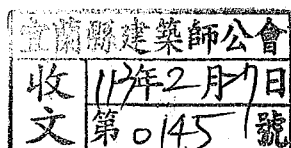 宜蘭縣建築師公會
收文
113年2月27日
第0145號